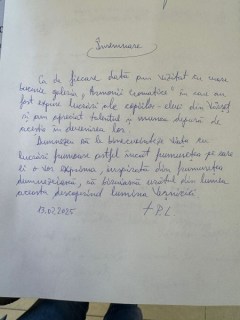 Însemnare
Ca de fiecare dată am vizitat cu mare
bucurie galeria „Armonii cromatice" în care au
fost expuse lucrări ale copiilor-elevi din Vârșeț
și am apreciat talentul și munca depusă de
aceștia în desenarea lor.
Dumnezeu să le binecuvinteze viața cu
lucrări frumoase astfel încât frumusețea pe care
ei o vor exprima, inspirată din frumusețea
dumnezeiască, să biruiască urâtul din lumea
aceasta descoperind lumina Veșniciei
13.02.2025